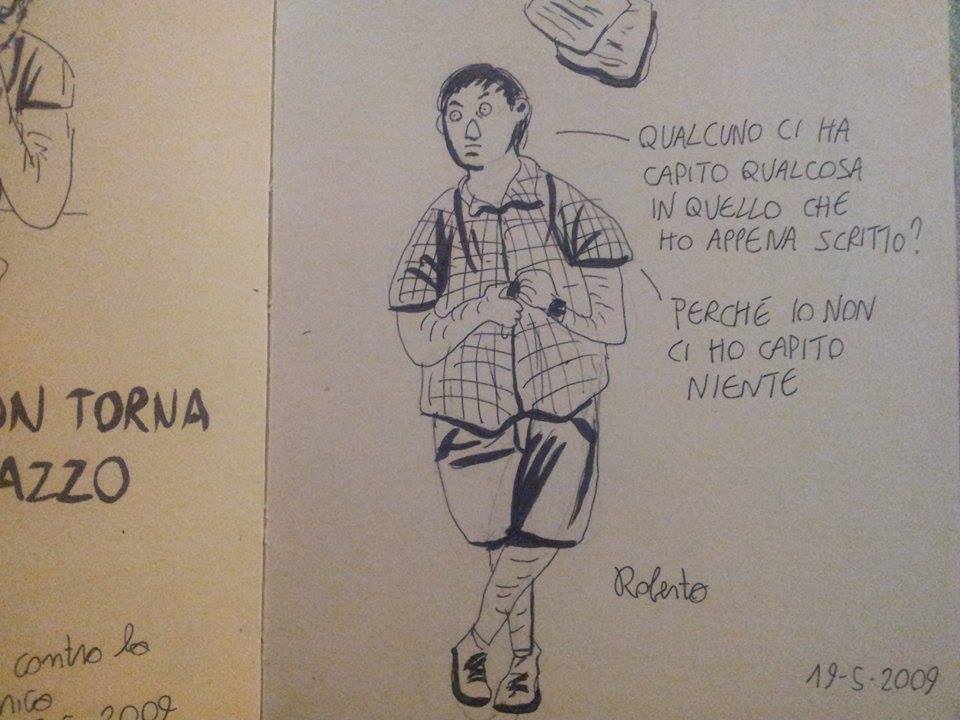 ON TORNA
AZZO
contro la
nico
2009
QUALCUNO CI HA
CAPITO QUALCOSA
IN QUELLO CHE
HO APPENA SCRITTO?
PERCHÉ IO NON
CI HO CAPITO
NIENTE
Roberto
19-5-2009